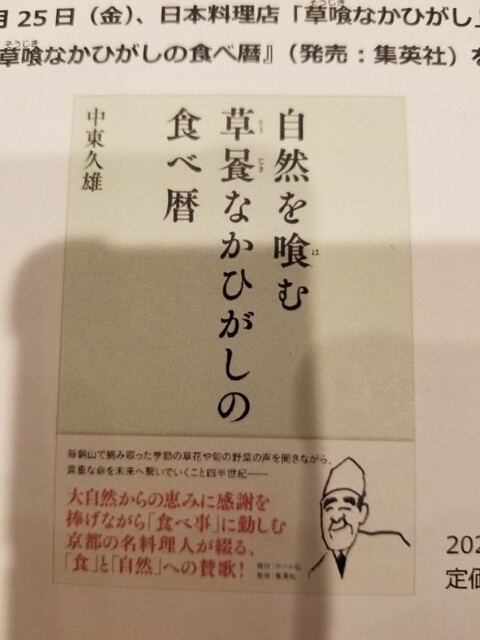 月25日（金）、日本料理店「草喰なかひがし」
そうじき
草喰なかひがしの食べ暦』（発売：集英社）を
そうじき
自然を喰む
は
草喰なかひがしの
そう じき
食べ暦
中東久雄
毎朝山で摘み取った季節の草花や旬の野菜の声を聞きながら、
貴重な命を未来へ繋いでいくこと四半世紀——
大自然からの恵みに感謝を
捧げながら「食べ事」に勤しむ
京都の名料理人が綴る、
「食」と「自然」への賛歌！
発行：ホーム社
発売：集英社
202
定価